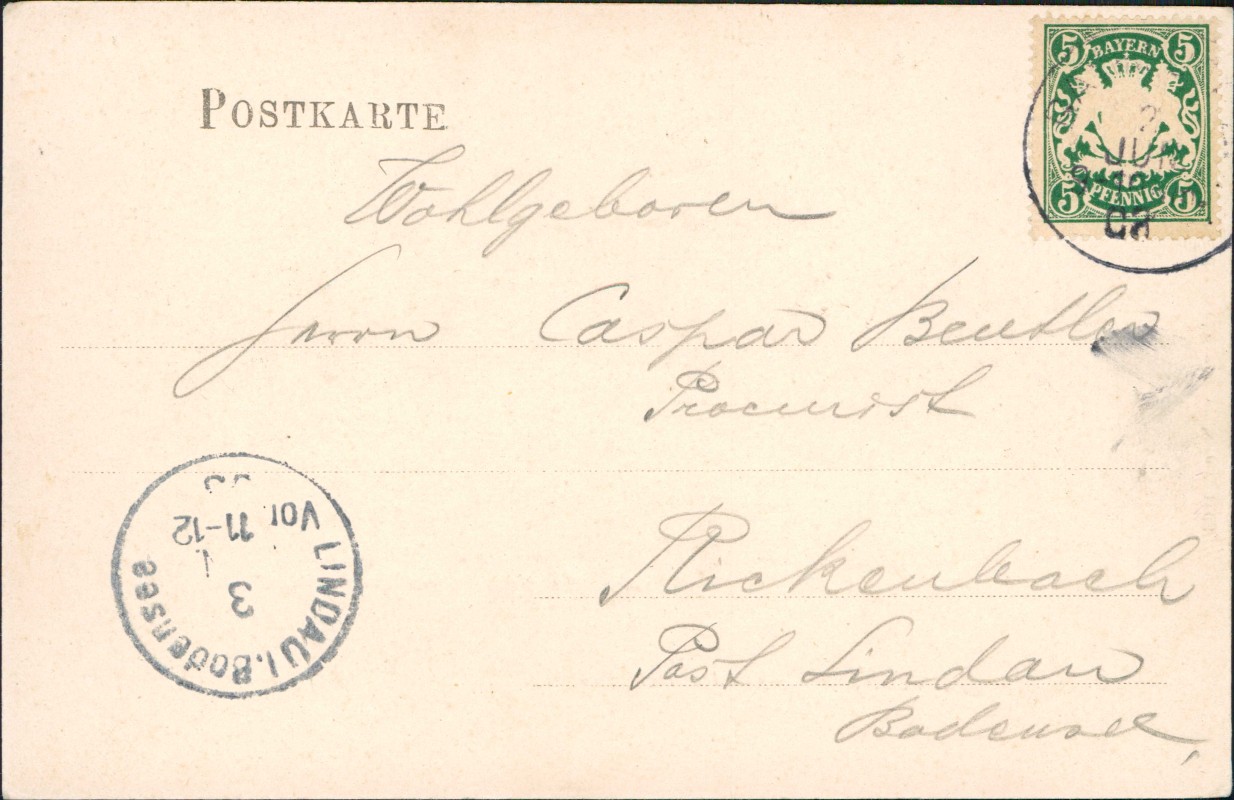 POSTKARTE
5 BAYERN 5
5 PFENNIG 5
JUN
03
Wohlgeboren
Herrn Caspar Beutler
Procurist
Rickenbach
Post Lindau
Bodensee
LINDAU i. Bodensee
3
Vor 11-12
03